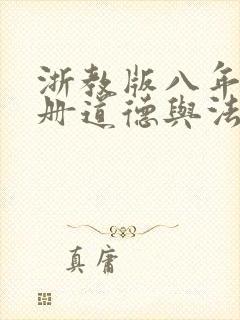 浙教版八年
册道德與法
真庸